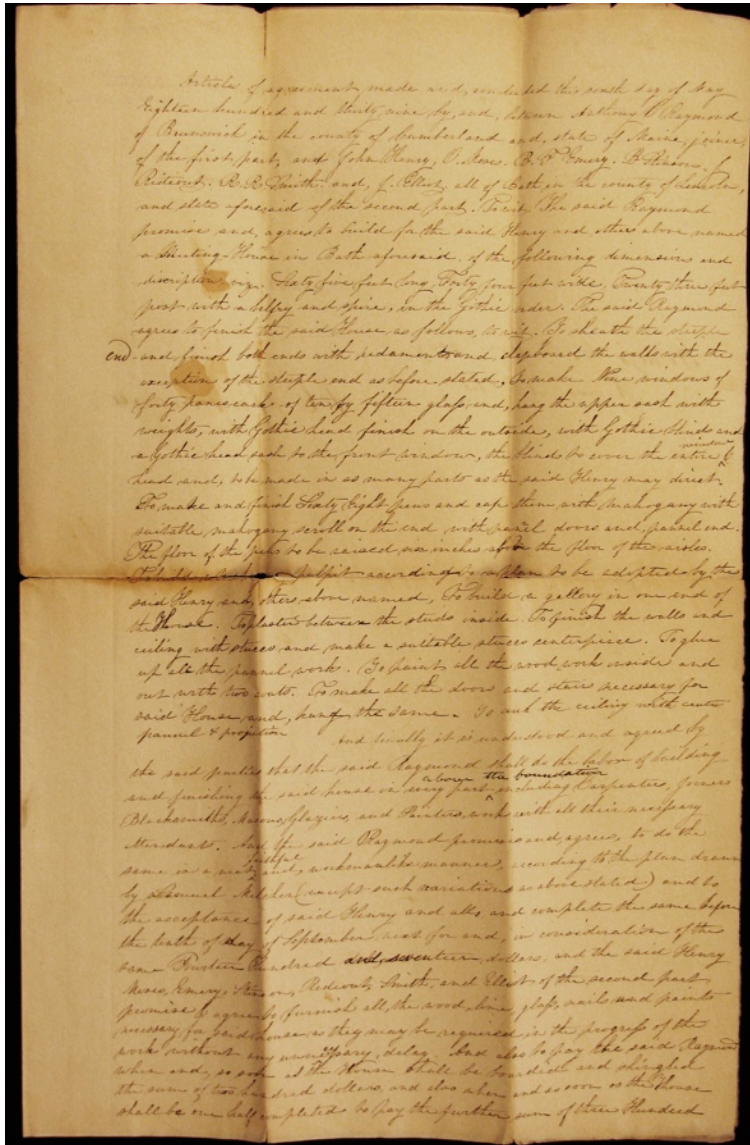 Article of agreement, made and, concluded this tenth day of May
Eighteen hundred and thirty nine by, and, between Anthony C Raymond
of Brunswick in the county of Cumberland and, state of Maine, joiner,
of the first part, and John Henry, O. Moses. B. F Emery. J
Rideout. R. R. Smith. and, J. Elliot, all of Bath in the county of Lincoln,
and state aforesaid of the second part. To wit, The said Raymond
promise and, agrees to build for the said Henry and others above named
a Meeting-House in Bath aforesaid. of the following dimension and
discription viz. Sixty five feet long, Forty four feet wide, Twenty three feet
post with a belfry and spire, in the Gothic order. The said Raymond
agrees to finish the said House, as follows, to wit. To sheath the steeple
end-and finish both ends with pedaments and, clapboard the walls with the
exception of the steeple end as before stated, To make Nine windows of
forty panes each of ten by fifteen glass, and, hang the upper sash with
weights, with Gothic head finish on the outside, with Gothic blinds and
a Gothic head sash to the front window, the blinds to cover the entire window &
head and, to be made in as many parts as the said Henry may direct.
To make and finish Sixty Eight pews and cap them with mahogany with
suitable mahogany scroll on the end with pannel doors and, pannel end.
The floor of the pews to be raised six inches above the floor of the aisles.
To build a pulpit according to a plan to be adopted by the
said Henry and, others above named, To build a gallery in one end of
the House. To plaster between the studs inside. To finish the walls and
ceiling with stucco and make a suitable stucco centerpiece. To glue
up all the pannel works. To paint all the wood work inside and
out with two coats. To make all the doors and stairs necessary for
said House and, hang the same. To the ceiling with center
pannel & projection
And finally it is understood and agreed by
the said parties that the said Raymond shall do the labor of building
and finishing the said house in every part above the foundation including Carpenters, Joiners
Blacksmiths, Masons, Glaziers, and Painters, work with all their necessary
Attendant. And the said Raymond promises and, agrees, to do the
same in a neat, faithful and, workmanlike manner, according to the plan drawn
by Samuel Melcher (except such variations as above stated) and to
the acceptance of said Henry and alls, and complete the same before
the tenth of day of September next for and, in consideration of the
same Fourteen Hundred and, seventeen dollars, and the said Henry
Moses, Emery, Rideout, Smith, and Elliot of the second part,
promise & agree to furnish all, the wood, lime, glass, nails and paints
necessary for said house as they may be required in the progress of the
work without any unnecessary, delay. And also to pay the said Raymond
when and, so soon as the House shall be boarded and shingled
the sum of two hundred dollars, and also when and so soon as the House
shall be one half completed to pay the further sum of three Hundred